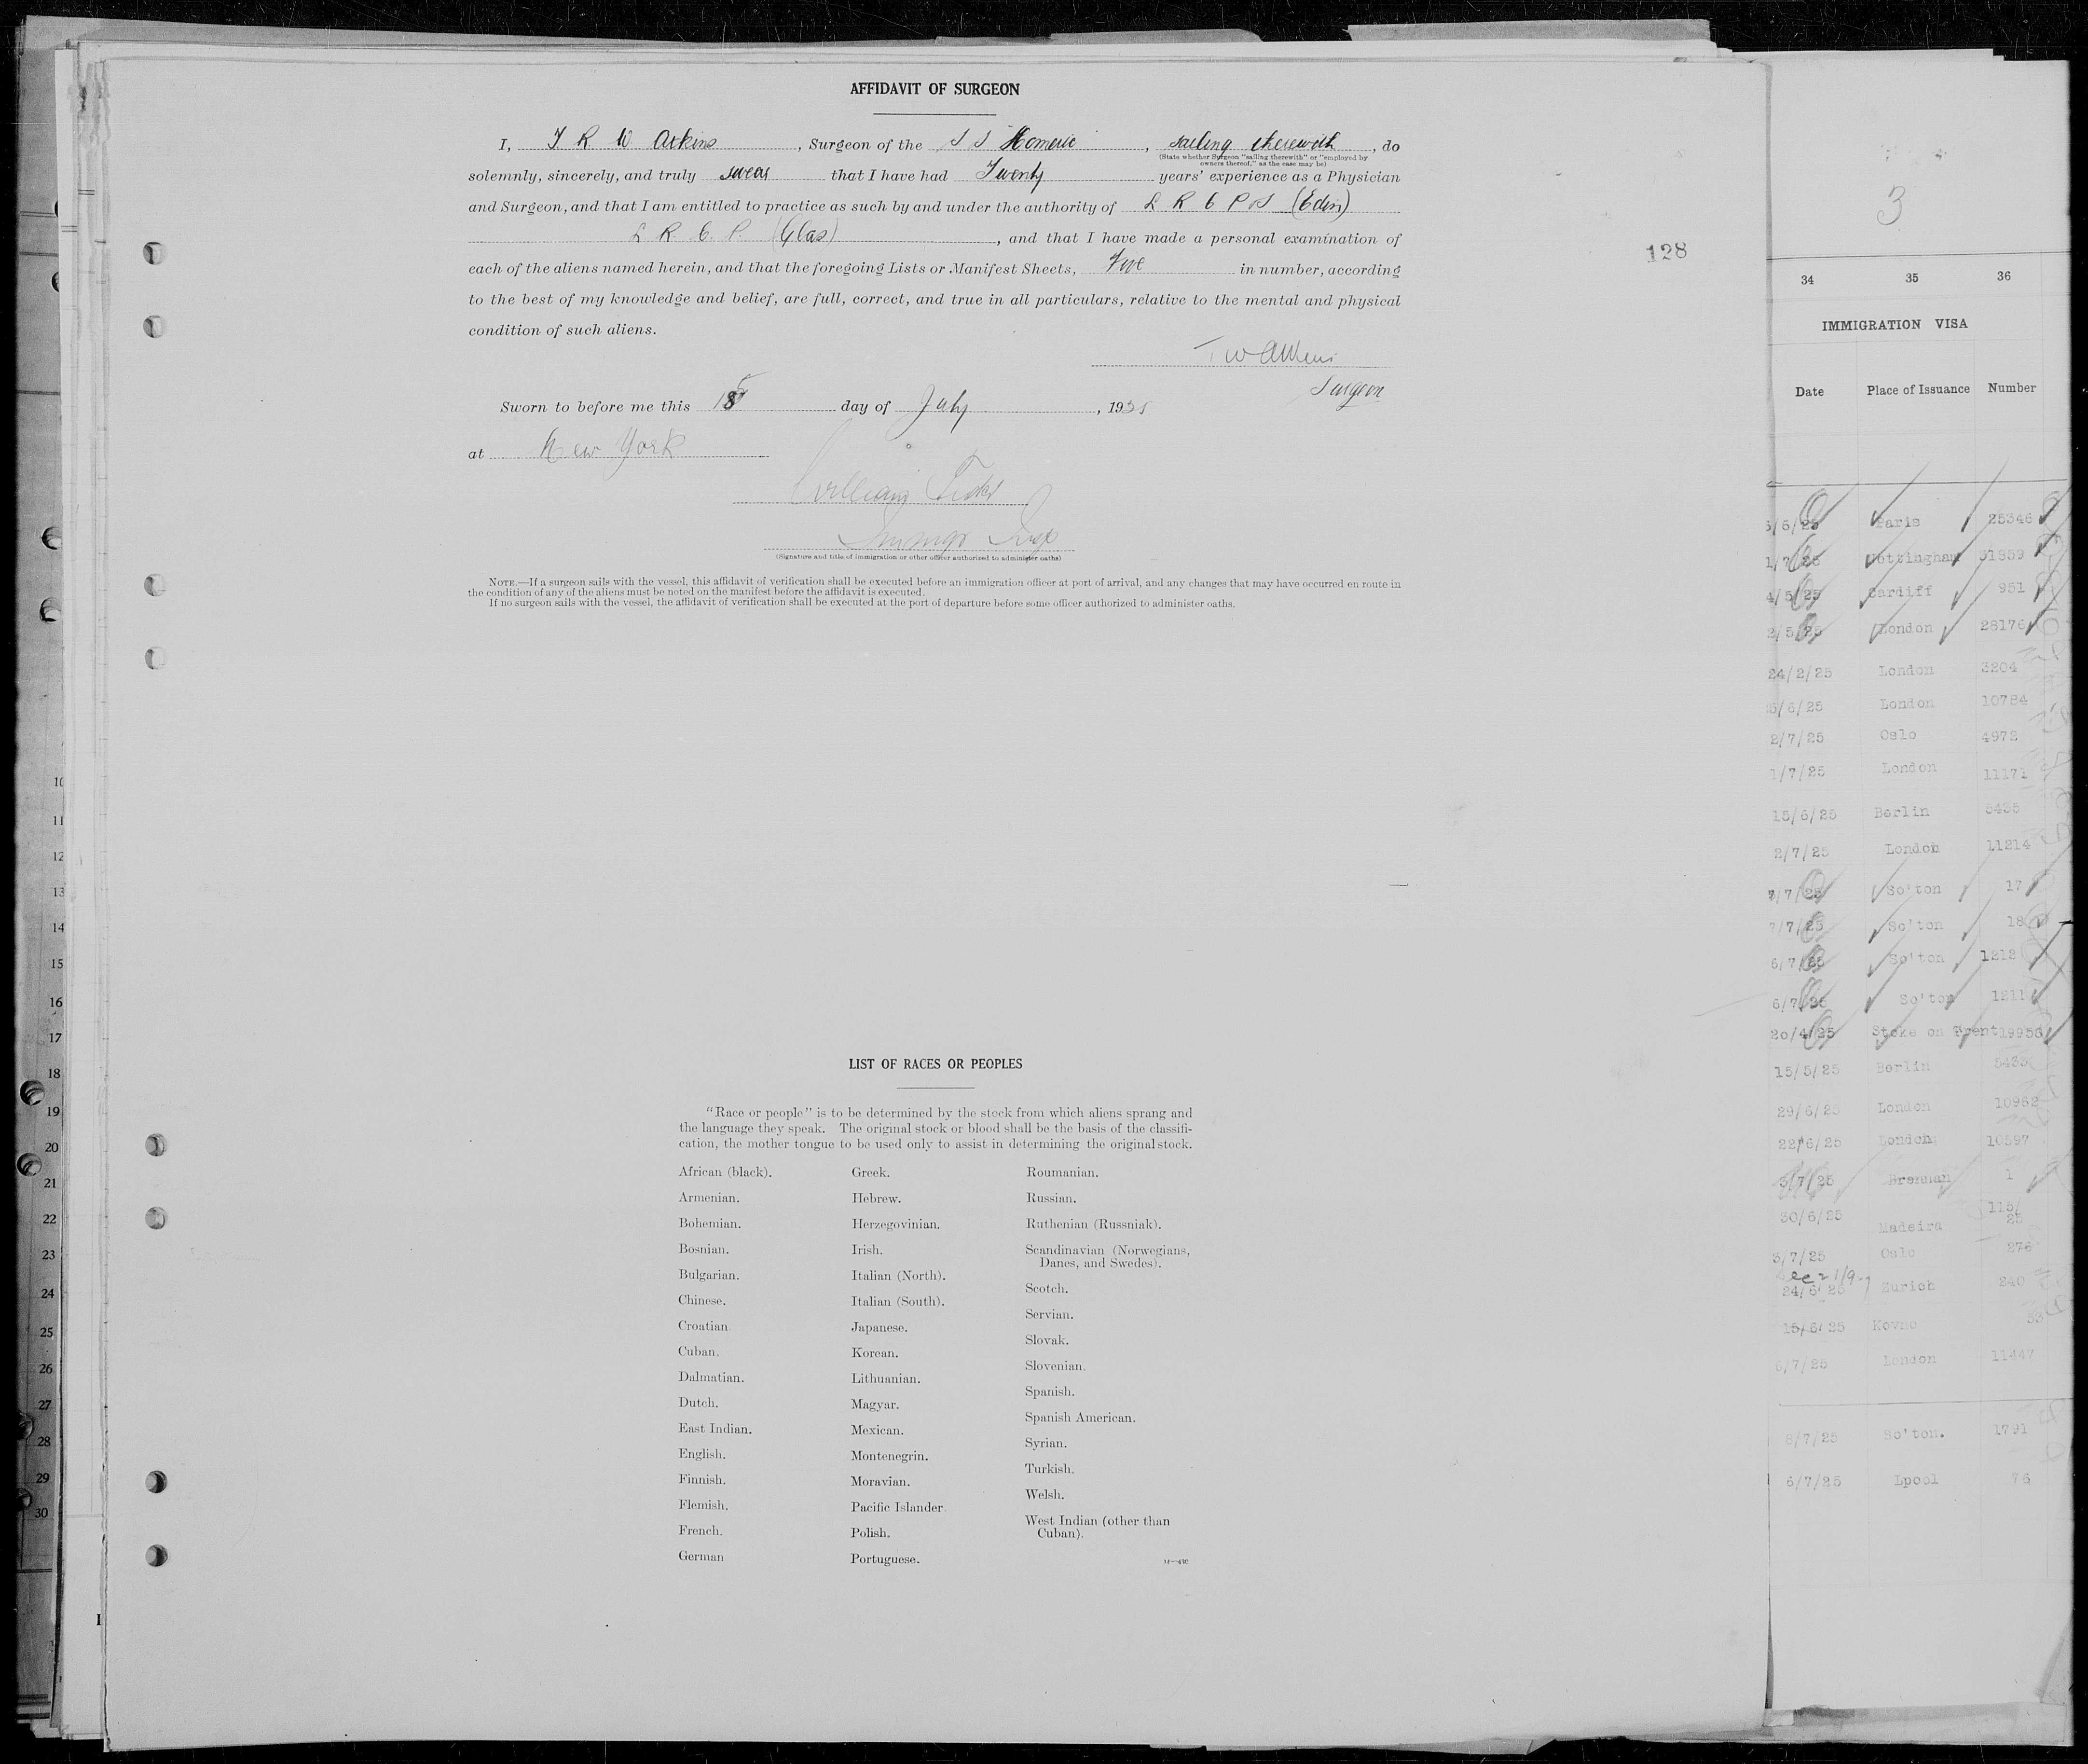 AFFIDAVIT OF SURGEON
I, T R W Atkins, Surgeon of the S S Homeric, sailing therewith, do
(State whether Surgeon "sailing therewith" or "employed by
owners thereof," as the case may be)
solemnly, sincerely, and truly swear that I have had Twenty years' experience as a Physician
and Surgeon, and that I am entitled to practice as such by and under the authority of L R C P & S (Edin)
L R. C. P. (Glas), and that I have made a personal examination of
each of the aliens named herein, and that the foregoing Lists or Manifest Sheets, Five in number, according
to the best of my knowledge and belief, are full, correct, and true in all particulars, relative to the mental and physical
condition of such aliens.
T W Atkins
Surgeon
Sworn to before me this day of July, 19
at New York
William
(Signature and title of immigration or other officer authorized to administer oaths)
NOTE.—If a surgeon sails with the vessel, this affidavit of verification shall be executed before an immigration officer at port of arrival, and any changes that may have occurred en route in
the condition of any of the aliens must be noted on the manifest before the affidavit is executed.
If no surgeon sails with the vessel, the affidavit of verification shall be executed at the port of departure before some officer authorized to administer oaths.
128
LIST OF RACES OR PEOPLES
"Race or people" is to be determined by the stock from which aliens sprang and
the language they speak. The original stock or blood shall be the basis of the classifi-
cation, the mother tongue to be used only to assist in determining the original stock.
African (black).
Armenian.
Bohemian.
Bosnian.
Bulgarian.
Chinese.
Croatian
Cuban.
Dalmatian.
Dutch.
East Indian.
English.
Finnish.
Flemish.
French.
German
Greek.
Hebrew.
Herzegovinian.
Irish.
Italian (North).
Italian (South).
Japanese.
Korean.
Lithuanian.
Magyar.
Mexican.
Montenegrin.
Moravian.
Pacific Islander
Polish.
Portuguese.
Roumanian.
Russian.
Ruthenian (Russniak).
Scandinavian (Norwegians,
Danes, and Swedes).
Scotch.
Servian.
Slovak.
Slovenian.
Spanish.
Spanish American.
Syrian.
Turkish.
Welsh.
West Indian (other than
Cuban).
10
11
12
13
14
15
16
17
18
19
20
21
22
23
24
25
26
27
28
29
30
3
34 35 36
IMMIGRATION VISA
Date Place of Issuance Number
/6/25 Paris 25346
1/7/25 Nottingham 31859
4/5/25 Cardiff 951
2/5/25 London 28176
24/2/25 London 3204
/6/25 London 10784
2/7/25 Oslo 4972
1/7/25 London 11171
15/6/25 Berlin 5435
2/7/25 London 11214
7/7/25 So'ton 17
7/7/25 So'ton 18
6/7/25 So'ton 1212
6/7/25 So'ton 1211
20/4/25 Stoke on Trent 19956
15/5/25 Berlin 5433
29/6/25 London 10962
22/6/25 London 10597
3/7/25 Bremman 1
30/6/25 Madeira 115/
25
3/7/25 Oslo 276
24/6/25 Zurich 240
15/6/25 Kovno
/7/25 London 11447
8/7/25 So'ton. 1791
6/7/25 Lpool 76